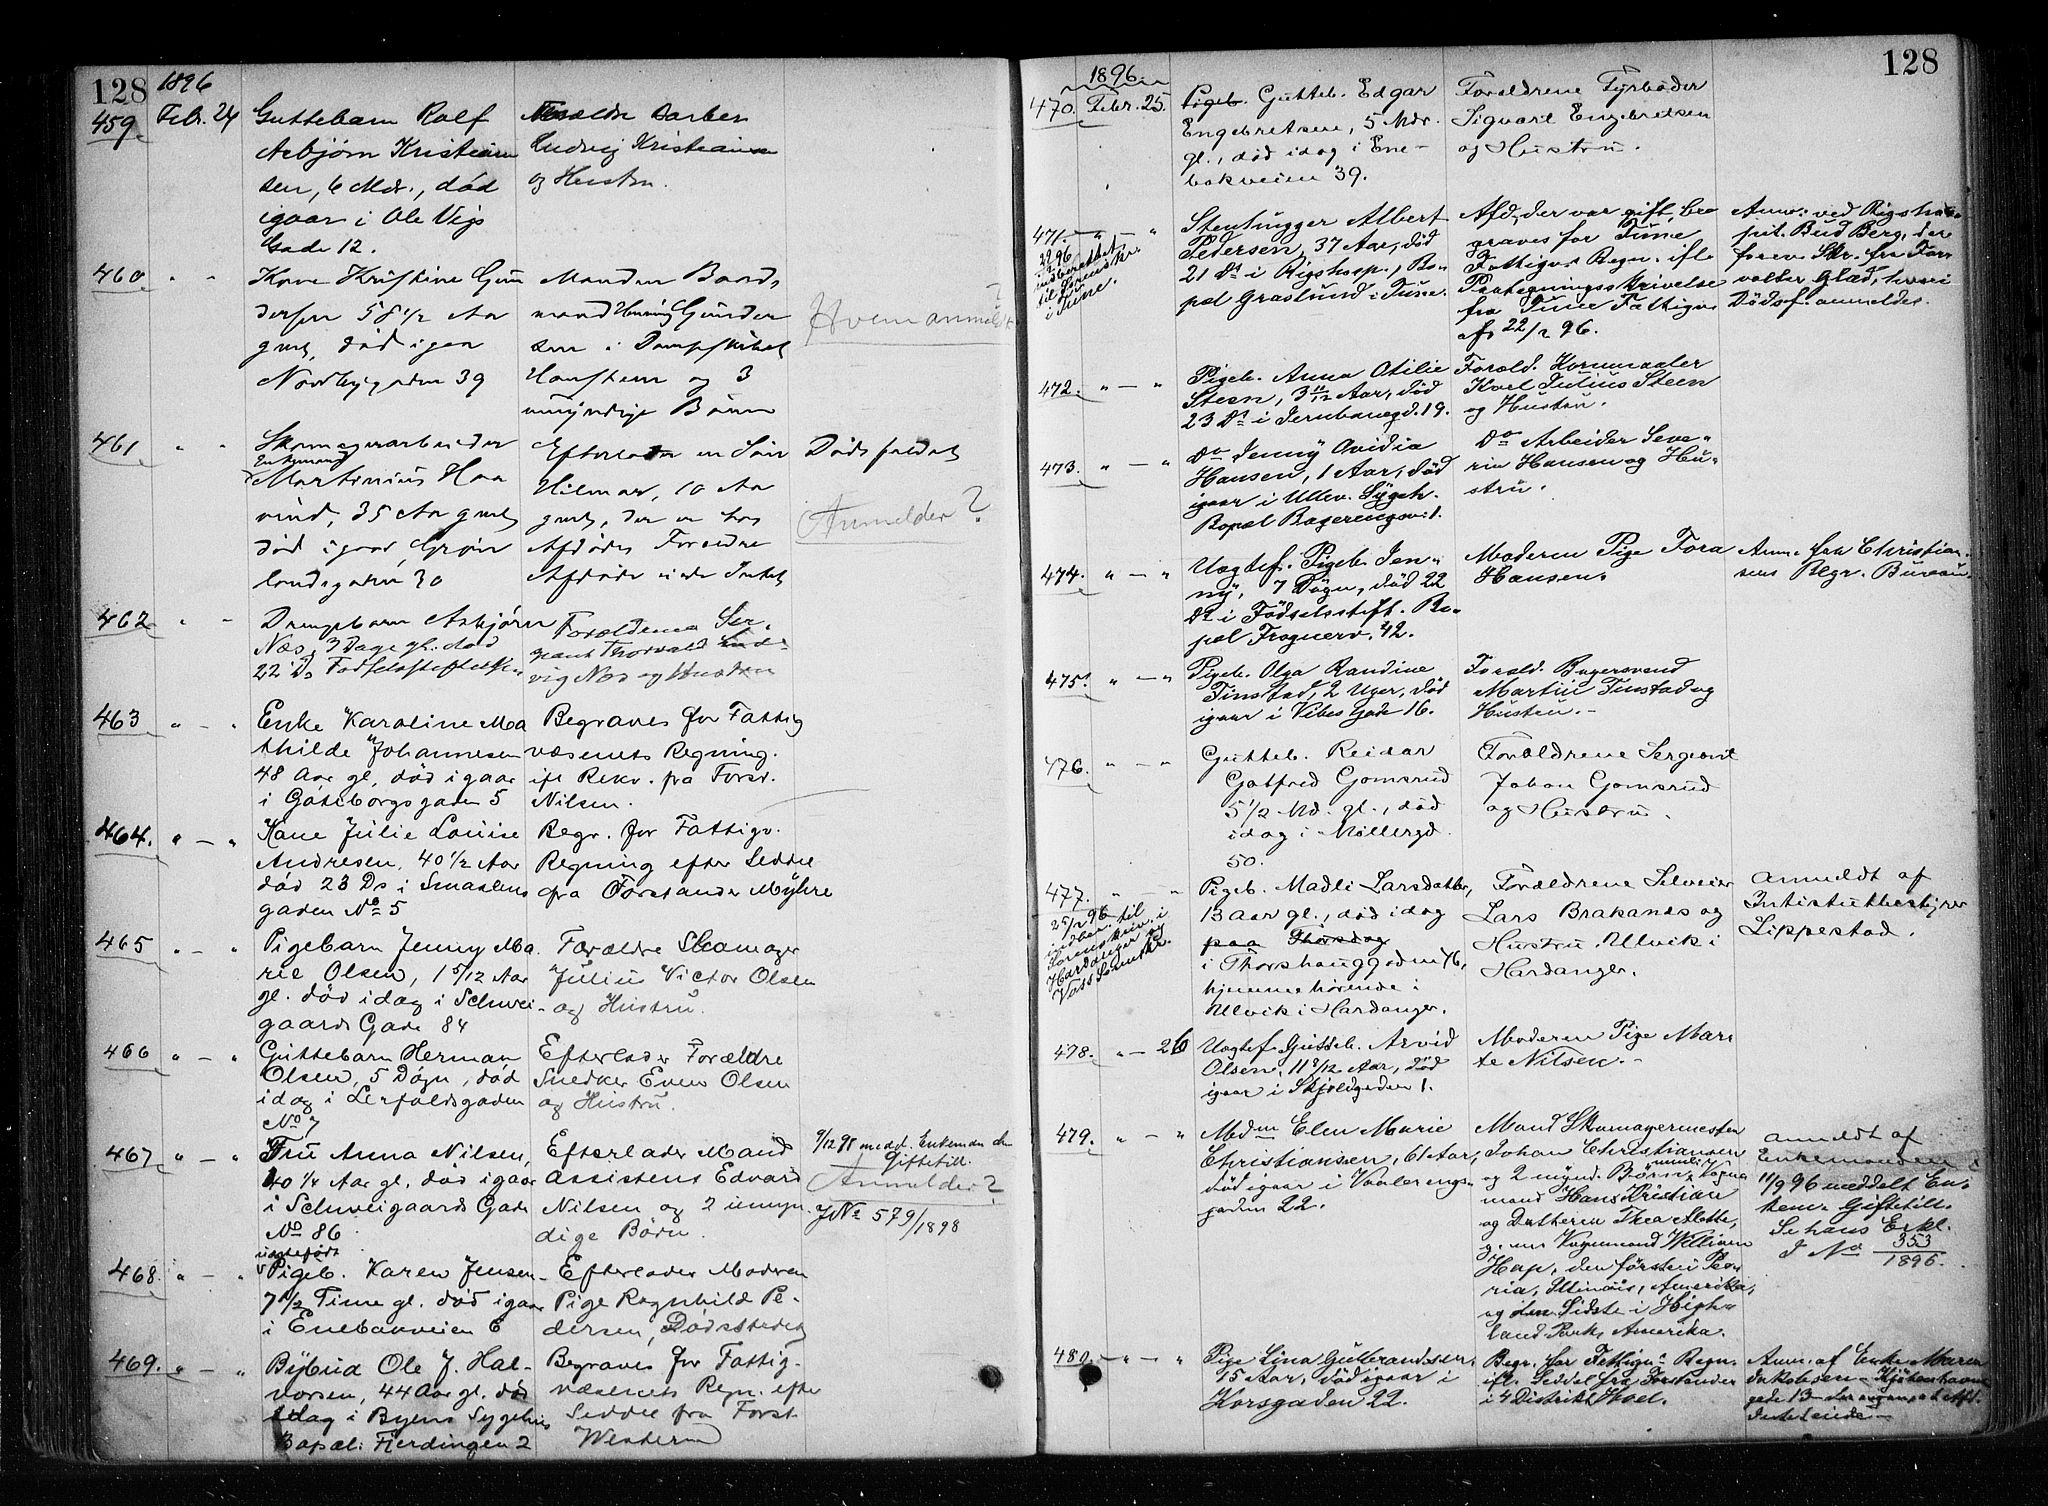 128
1896
459
Febr. 24
Guttebarn Rolf
Asbjørn Kristian
sen, 6 Mdr., død
igaar i Ole Vigs
Gade 12.
Forældre Barber
Ludvig Kristiansen
og Hustru.
460 " "
Kone Kristine Gun
dersen 58 1/2 Aar
gml, død igaar
Nordbygaden 39
Manden Baads
mand Henning Gunder
sen i Dampskibet
Hansteen og 3
umyndige Børn
Hvem anmeldt?
461 " "
Skomagerarbeider
Enkemand
Martinius Haa
vind, 35 Aar gml,
død igaar Grøn
landsgaden 30
Efterlader en Søn
Hilmar, 10 Aar
gml, der er hos
Afdødes Forældre
Afdøde eiede Intet
Dødsfaldet
Anmelder?
462 " "
Drengebarn Asbjørn
Næs, 3 Dage gl. død
22 Ds Fødselsstiftelse
Forældrene Ser-
geant Thorvald Lud-
vig Næs og Hustru
463 " — "
Enke Karoline Ma
thilde Johannesen
48 Aar gl, død igaar
i Gøteborgsgaden 5
Begraves for Fattig
væsenets Regning.
ifl Rekv. fra Forst.
Nilsen.
464. " — "
Kone Julie Louise
Andresen, 40 1/2 Aar
død 23 Ds i Smaalens
gaden No 5
Begr. for Fattigv.
Regning efter Seddel
fra Forstander Myhre
465 " — "
Pigebarn Jenny Ma
rie Olsen, 1 5/12 Aar
gl. død idag i Schwei-
gaards Gade 84
Forældre Skomager
Julius Victor Olsen
og Hustru.
466 " — "
Guttebarn Herman
Olsen, 5 Døgn, død
idag i Lerfaldsgaden
No 7
Efterlader Forældre
Snedker Even Olsen
og Hustru.
467 " — "
Fru Anna Nilsen,
40 1/4 Aar gl, død igaar
i Schweigaards Gade
No 86
Efterlader Mand
Assistens Edvard
Nilsen og 2 umyn
dige Børn.
9/12 98 meddel. Enkeman den
Giftetill.
Anmelder?
J No 579/1898
468. " — "
uægtefødt
Pigeb. Karen Jensen
7 1/2 Time gl. død igaar
i Enebakveien 6
Efterlader Moderen
Pige Ragnhild Pe-
dersen, Dødsstedet
469. " — "
Bybud Ole J. Hal-
vorsen, 44 Aar gl. død
idag i Byens Sygehus
Bopæl: Fjerdingen 2
Begraves for Fattig-
væsenets Regn. efter
Seddel fra Forst.
Western
128
1896
470. Febr. 25.
Pigeb. Gutteb. Edgar
Engebretsen, 5 Mdr.
gl., død idag i Ene-
bakveien 39.
Forældrene Fyrbøder
Sigvart Engebretsen
og Hustru.
471. — " — "
indberettet
til Sorenskr.
i Tune.
Stenhugger Albert
Pedersen, 37 Aar, død
21 Ds i Rigshosp., Bo-
pæl Graslund i Tune.
Afd., der var gift, be-
graves for Tune
Fattigvs Regn. ifl.
Paategningsskrivelse
fra Tune Fattigv.
af 22/2 96.
Anm. ved Rigsho-
spit. Bud Berg, der
forev. Skr. fra For-
valter Glad, hvori
Dødsf. anmeldes.
472. " — "
Pigeb. Anna Otilie
Steen, 3 11/12 Aar, død
23 Ds i Jernbanegd. 19.
Foræld. Kornmaaler
Karl Julius Steen
og Hustru.
473. " — "
Do Jenny Ovidia
Hansen, 1 Aar, død
igaar i Ullev. Sygeh.
Bopæl Bagerengsv. 1.
Do Arbeider Seve-
rin Hansen og Hu-
stru.
474. " — "
Uægtef. Pigeb. Jen-
ny, 7 Døgn, død 22
Ds i Fødselsstift. Bo-
pæl Frognerv. 42.
Moderen Pige Tora
Hansen.
Anm. fra Christian-
sens Begr. Bureau.
475. " — "
Pigeb. Olga Randine
Finstad, 2 Uger, død
igaar i Vibes Gade 16.
Foræld. Bagersvend
Martin Finstad og
Hustru. -
476. " — "
Gutteb. Reidar
Gotfred Gomsrud
5 1/2 Md. gl., død
idag i Møllergd.
50.
Forældrene Sergeant
Johan Gomsrud
og Hustru.
477. " — "
25/2 96 til
indber. til
Sorenskriver i
Hardanger og
Voss Sorenskr.
Pigeb. Madli Larsdatter,
13 Aar gl., død idag
paa Thorsdag
i Thorshauggaden 76,
hjemmehørende i
Ulvik i Hardanger.
Forældrene Selveier
Lars Brakanes og
Hustru, Ulvik i
Hardanger.
Anmeldt af
Intistutbestyrer
Lippestad.
478. " — 26
Uægtef. Gutteb. Arvid
Olsen, 11 9/12 Aar, død
igaar i Skjoldgaden 1.
Moderen Pige Mar-
te Nilsen. -
479. " — "
Mdm Elen Marie
Christiansen, 61 Aar,
død igaar i Vaalerengs-
gaden 22.
Mand Skomagermester
Johan Christiansen
og 2 mynd. Børn, nemlig Vogn
mand Hans Kristian
og Datteren Thea Alette,
g. m. Vognmand William
Hap, den første i Peo-
ria, Illinois, Amerika,
og den Sidste i High-
land Park, Amerika.
Anmeldt af
Enkemanden
11/9 96 meddelt En-
kem. Giftetill.
Se hans Erkl.
J No 353/1896.
480. — " — "
Pige Lina Gulbrandsen,
15 Aar, død igaar i
Korsgaden 22.
Begr. for Fattigvs Regn.
ifl. Seddel fra Forstander
i 4 Distrikt Hoel.
Anm. af Enke Maren
Jakobsen — Kjøbenhavns
gade 13